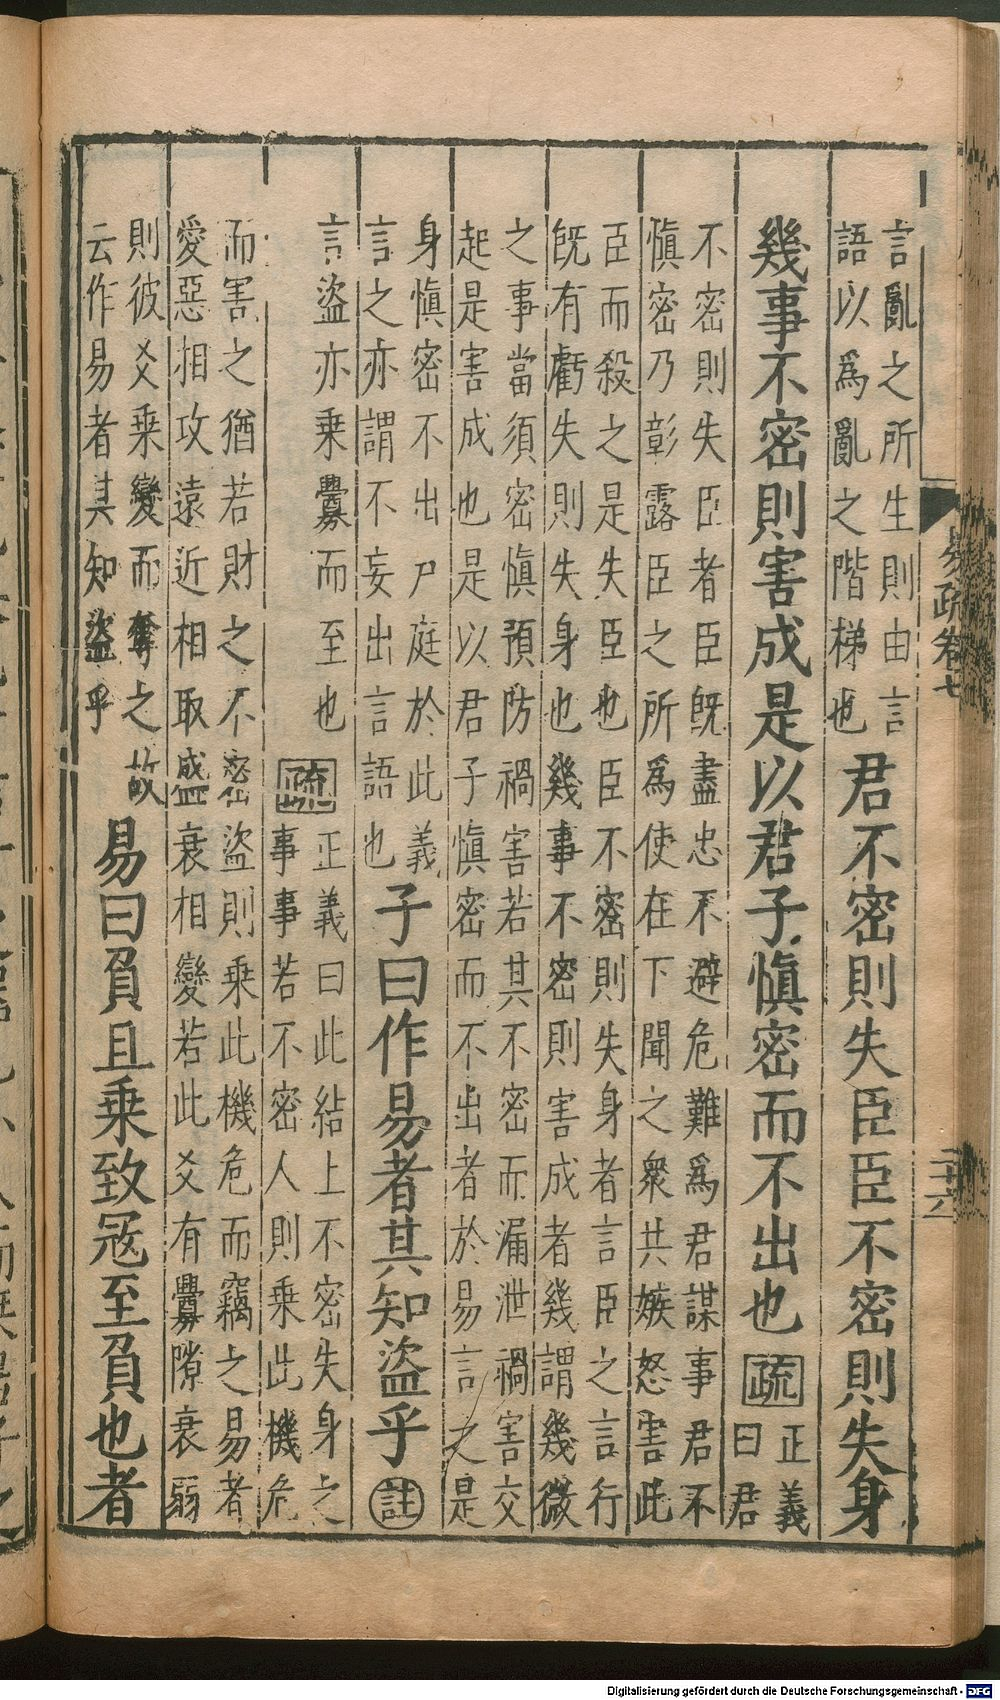 言亂之所生則由言
語以爲亂之階梯也
君不密則失臣臣不密則失身
幾事不密則害成是以君子愼密而不出也
疏
正義
曰君
不密則失臣者臣旣盡忠不避危難爲君謀事君不
愼密乃彰露臣之所爲使在下聞之衆共嫉怒害此
臣而殺之是失臣也臣不密則失身者言臣之言行
旣有虧失則失身也幾事不密則害成者幾謂幾微
之事當須密愼預防禍害若其不密而漏泄禍害交
起是害成也是以君子愼密而不出者於易言之是
身愼密不出戸庭於此義
言之亦謂不妄出言語也
子曰作易者其知盜乎
註
言盜亦乘釁而至也
疏
正義曰此結上不密失身之
事事若不密人則乘此機危
而害之猶若財之不密盜則乘此機危而竊之易者
愛惡相攻遠近相取盛衰相變若此爻有釁隙衰弱
則彼爻乘變而奪之故
云作易者其知盜乎
易曰負且乘致寇至負也者
易疏卷七
二十六
Digitalisierung gefördert durch die Deutsche Forschungsgemeinschaft - DFG